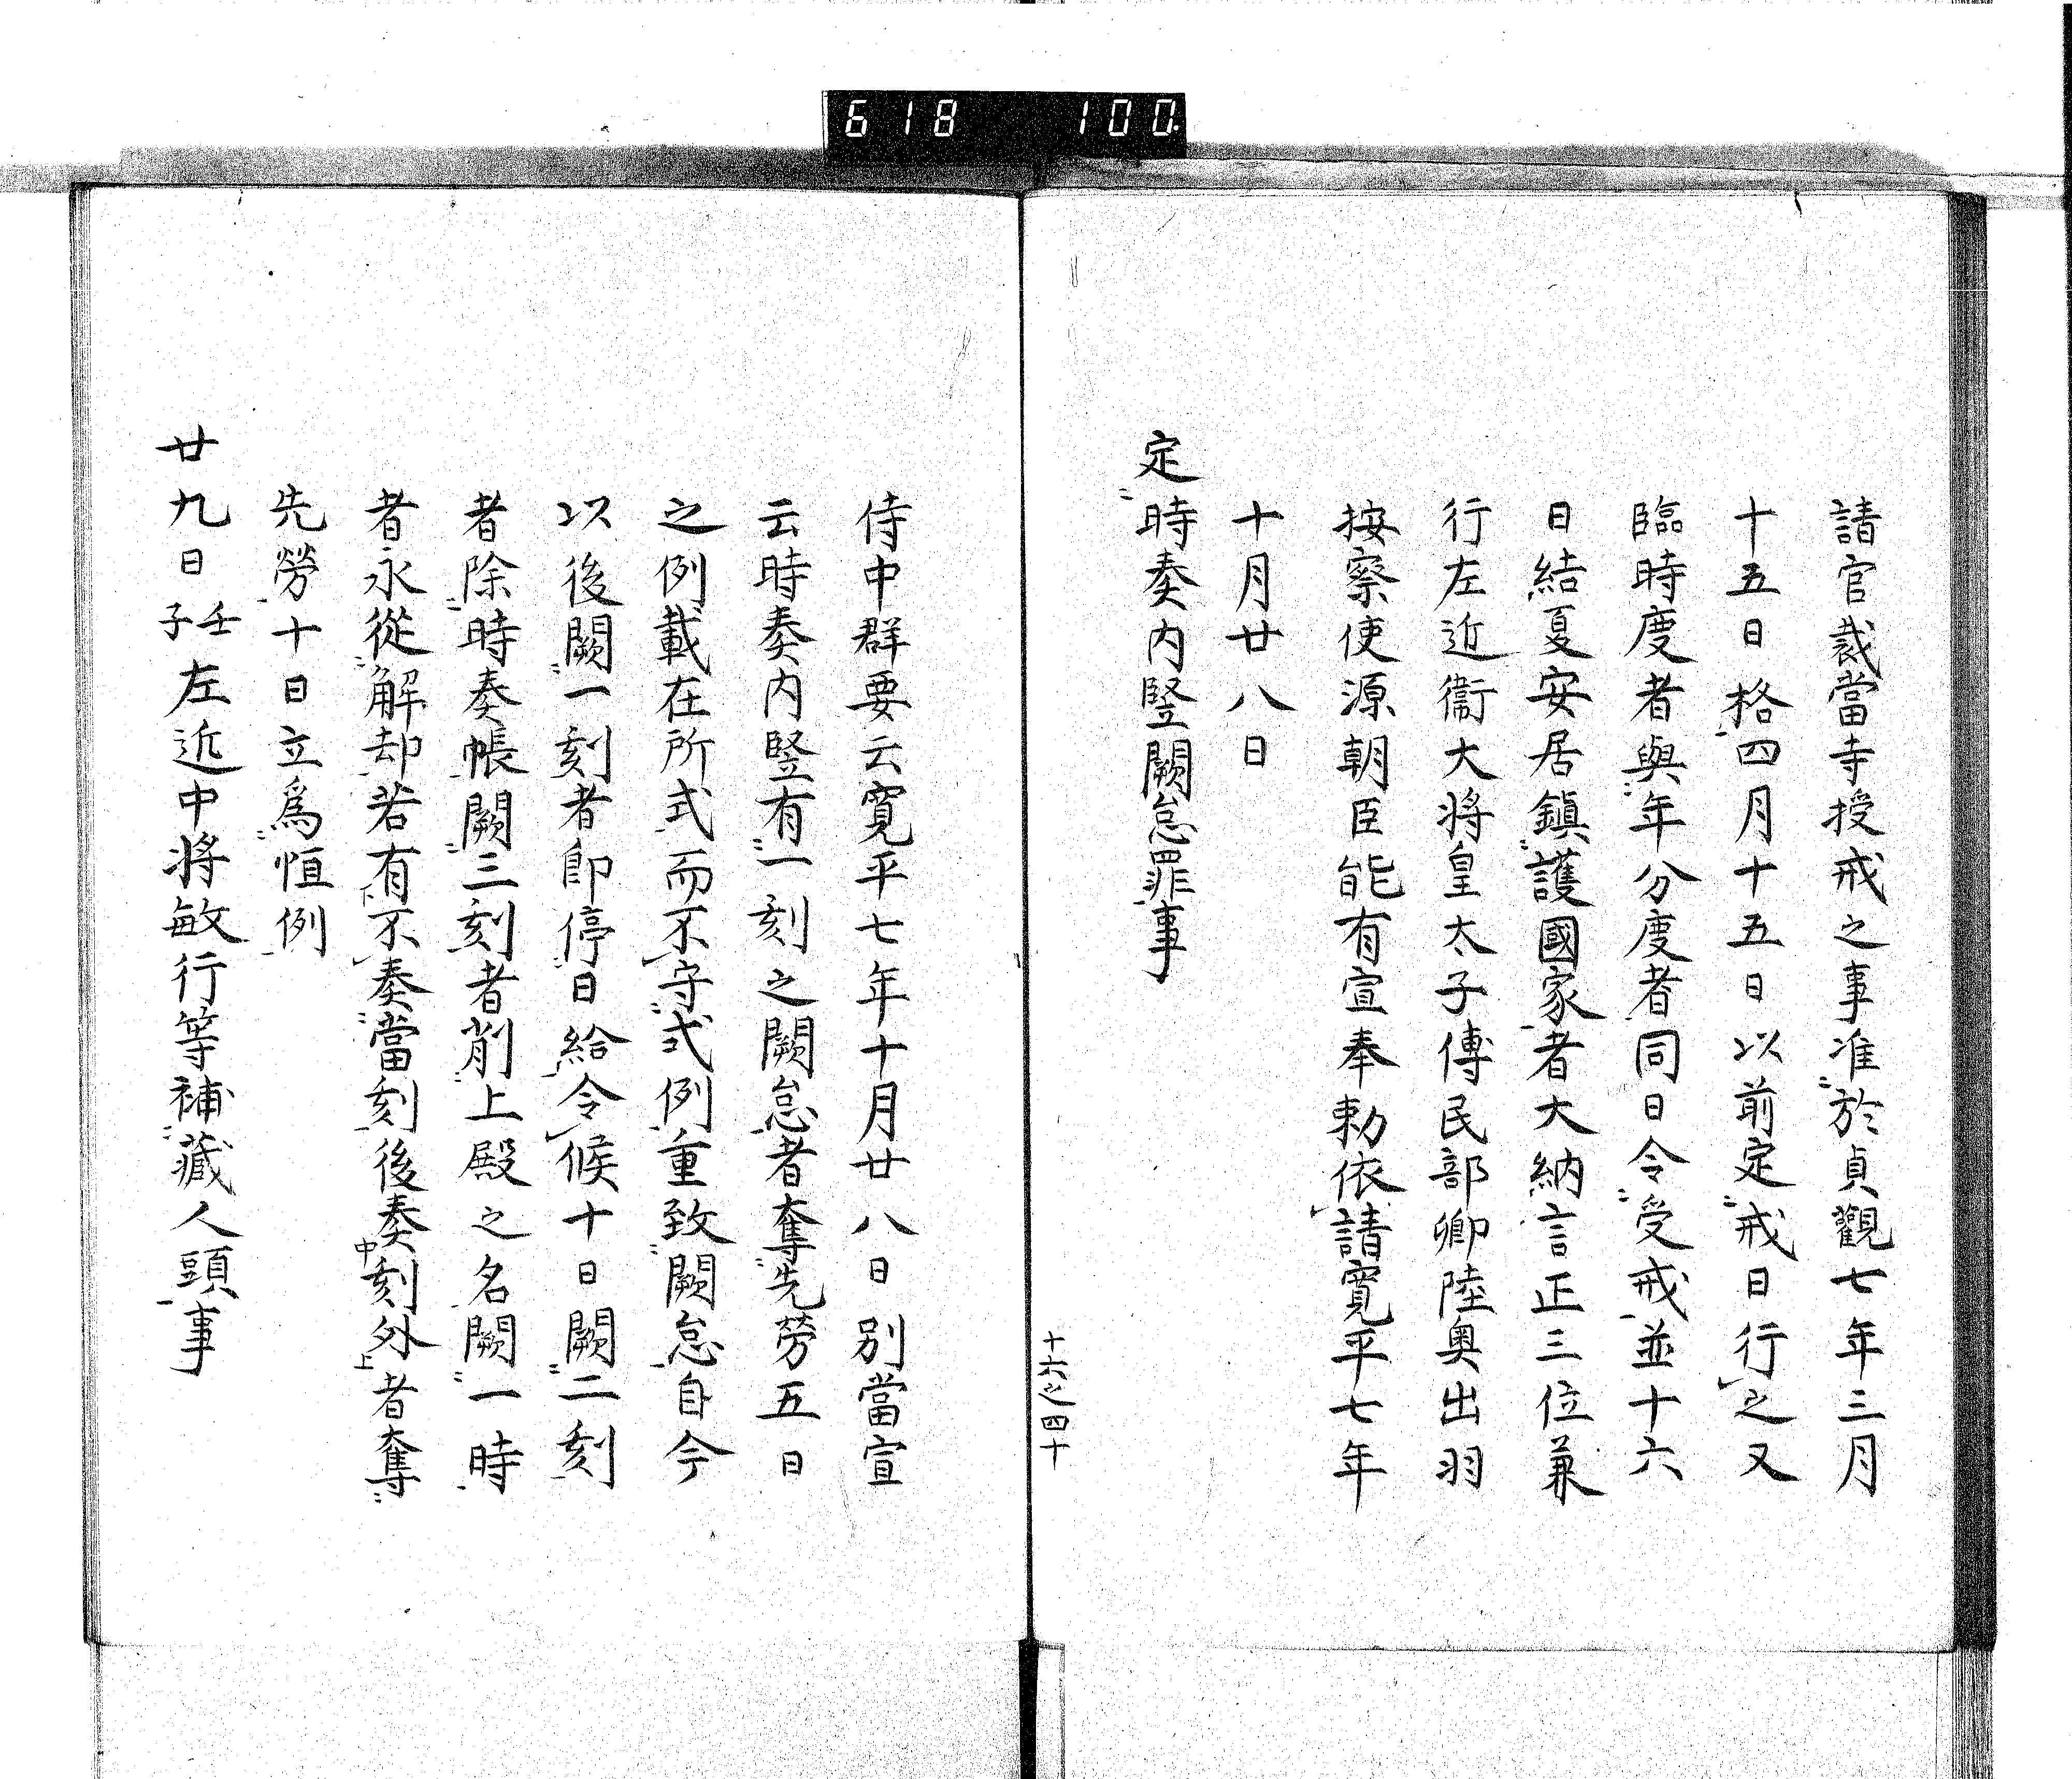 618 100.
請官裁當寺授戒之事准於貞觀七年三月
十五日格四月十五日以前定戒日行之又
臨時度者與年分度者同日令受戒並十六
日結夏安居鎮護國家者大納言正三位兼
行左近衞大将皇太子傅民部卿陸奥出羽
按察使源朝臣能有宣奉勅依請寛平七年
十月廿八日
定時奏内竪闕怠罪事
十六之四十
侍中群要云寛平七年十月廿八日別當宣
云時奏内竪有一刻之闕怠者奪先勞五日
之例載在所式而不守式例重致闕怠自今
以後闕一刻者即停日給令候十日闕二刻
者除時奏帳闕三刻者削上殿之名闕一時
者永從解却若有下不奏當刻後奏中刻外上者奪
先勞十日立爲恒例
廿九日壬子左近中将敏行等補藏人頭事